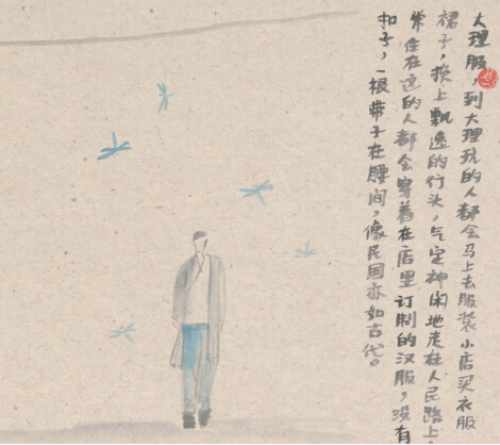 大理服，到大理玩的人都会马上去服装小店买衣服
裙子，换上飘逸的行头，气定神闲地走在人民路上
常住在这的人都会穿着在店里订制的汉服，没有
扣子，一根带子在腰间，像民国亦如古代。